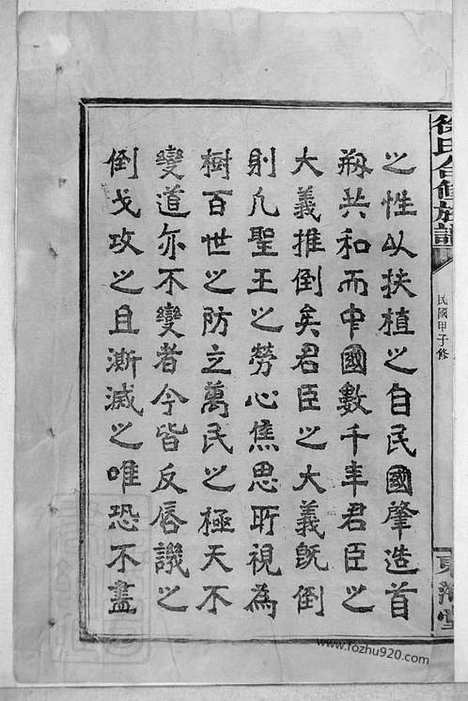 徐氏合修族譜
民國甲子修
東海堂
之性以扶植之自民國肇造首
刱共和而中國數千年君臣之
大義推倒矣君臣之大義旣倒
則凡聖王之勞心焦思所視為
樹百世之防立萬民之極天不
變道亦不變者今皆反唇譏之
倒戈攻之且澌滅之唯恐不盡
www.fozhu920.com